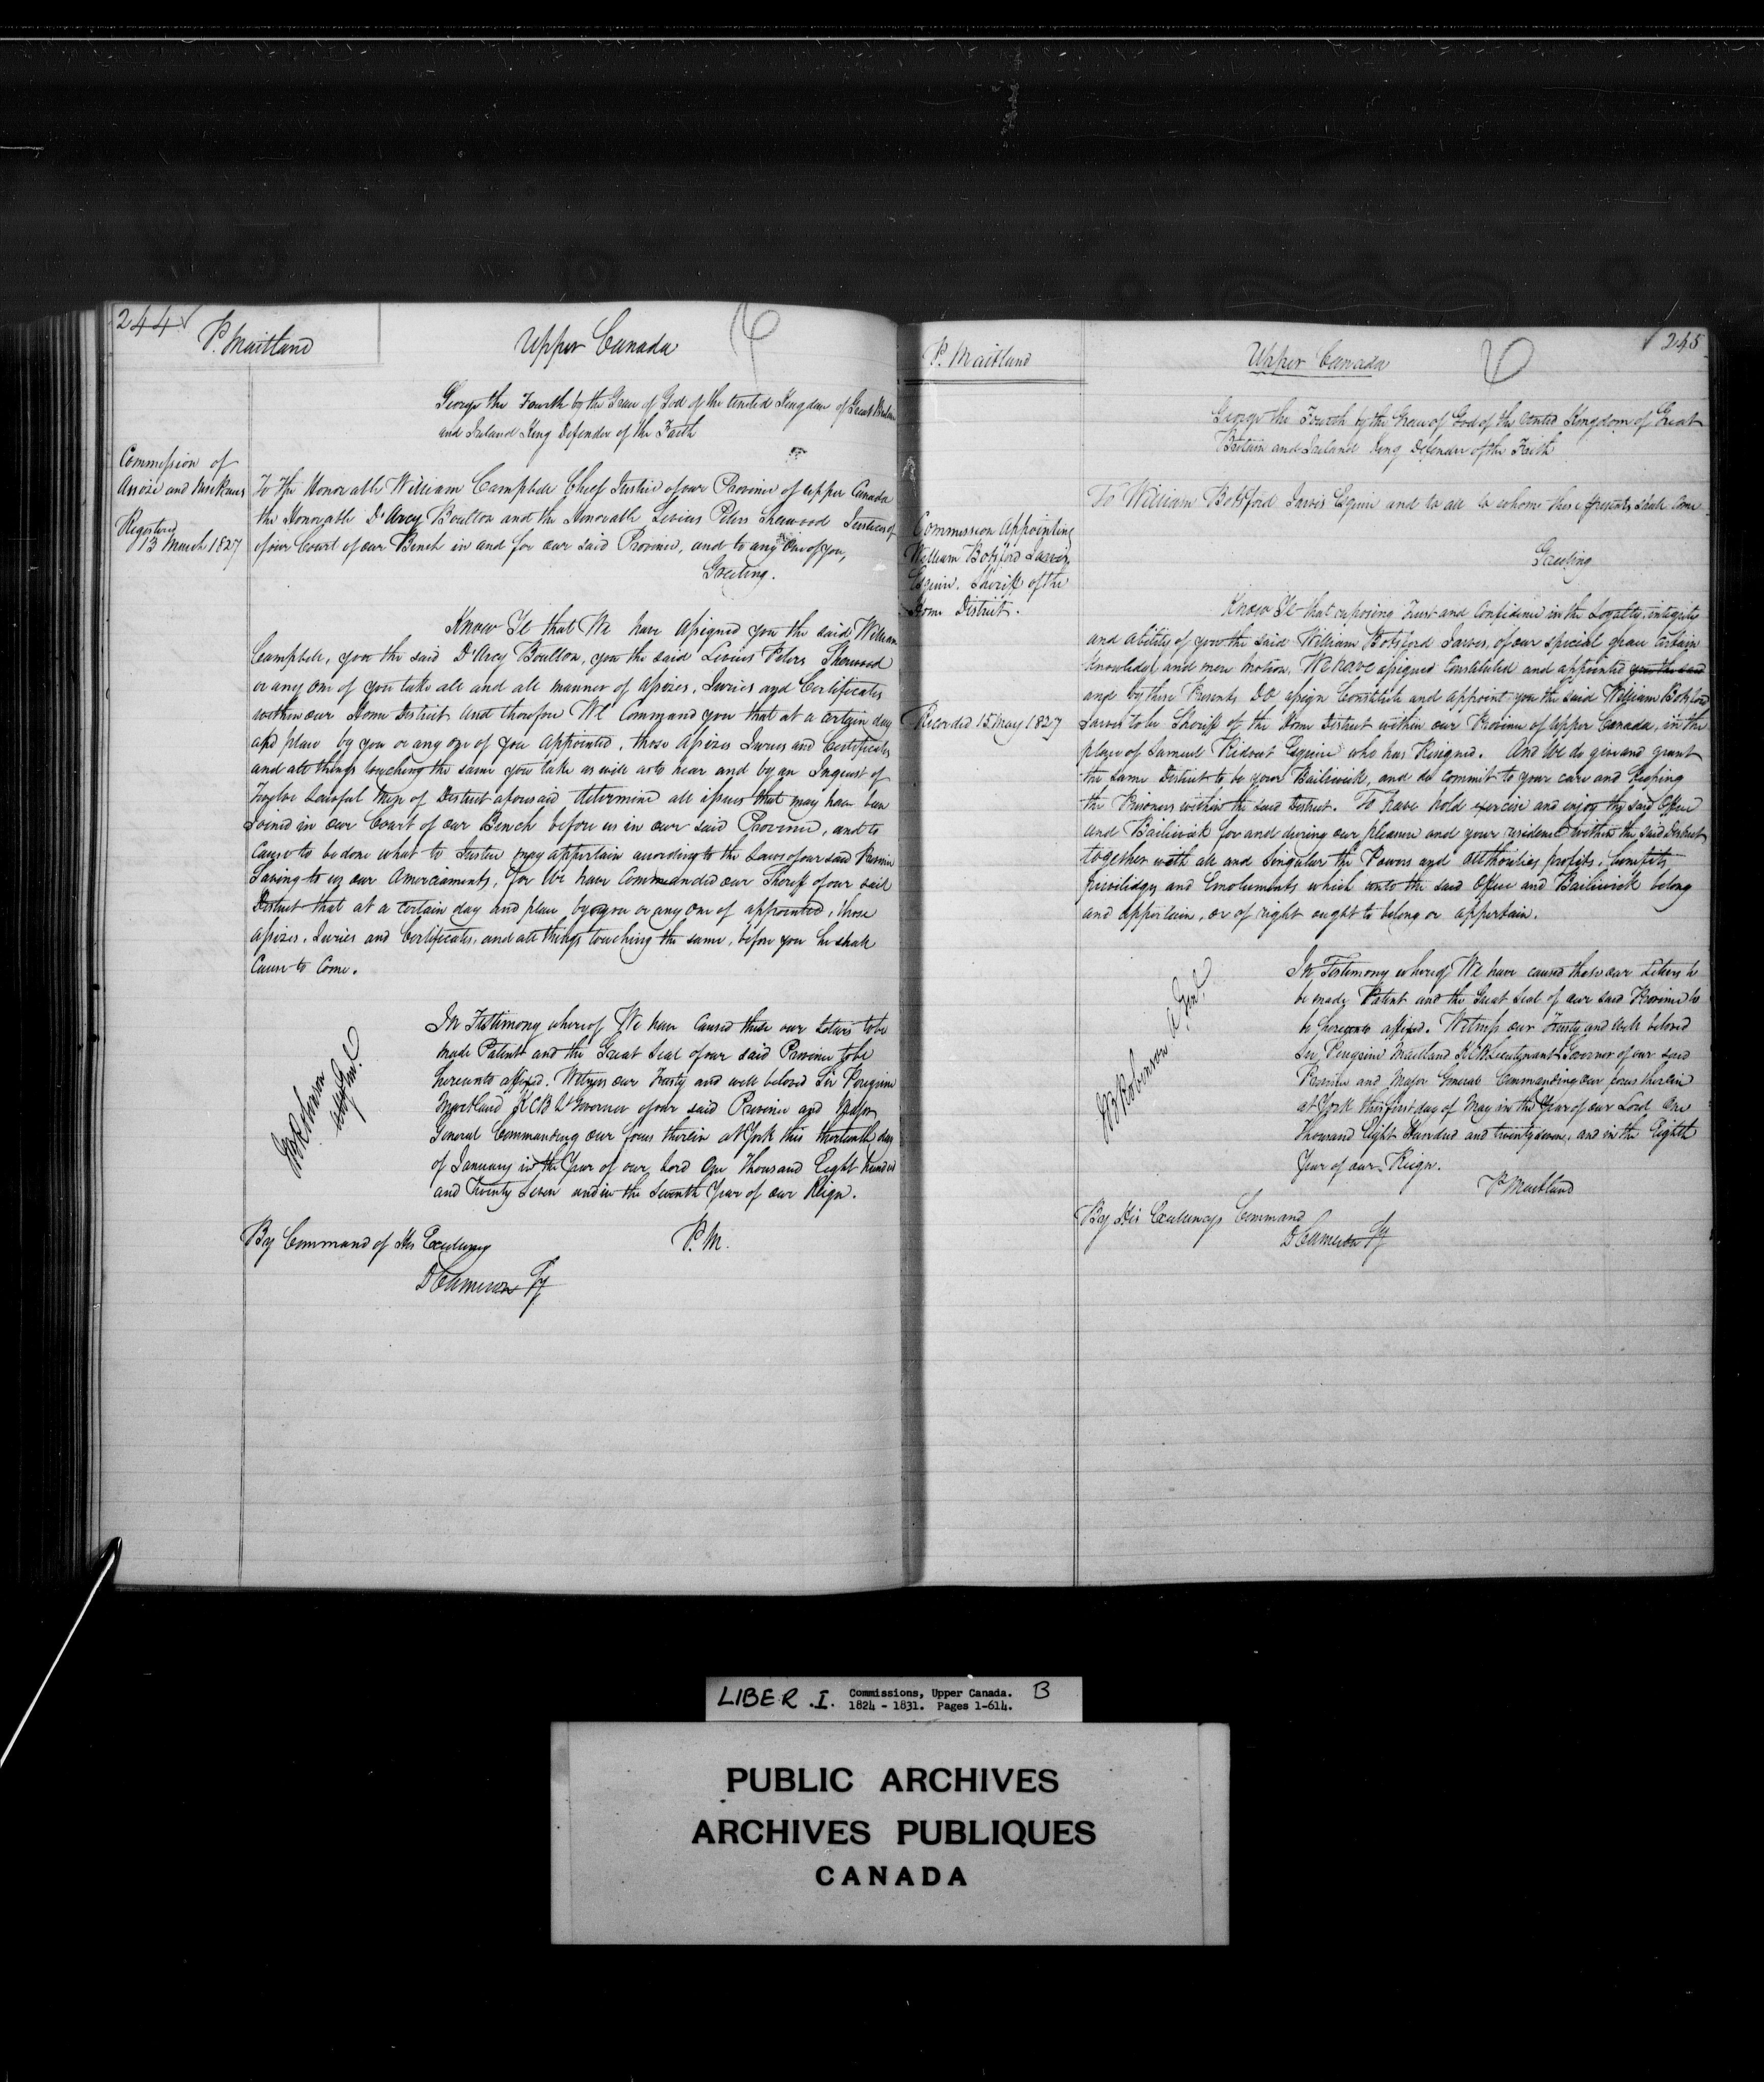 244
P. Maitland
Upper Canada
George the Fourth by the Grace of God of the United Kingdom of Great Britain
and Ireland King Defender of the Faith
Commission of
Assize and Nisi Prius
Registered
13 March 1827
To The Honorable William Campbell Chief Justice of our Province of Upper Canada
the Honorable D'Arcy Boulton and the Honorable Levius Peters Sherwood Justices of
of our Court of our Bench in and for our said Province, and to any one of you,
Greeting.
Know Ye that We have assigned you the said William
Campbell, you the said D'Arcy Boulton, you the said Levius Peters Sherwood
or any one of you take all and all manner of Assizes, Juries and Certificates
within our Home District and therefore We Command you that at a certain day
and place by you or any one of you appointed, those Assizes Juries and Certificates
and all things touching the same you take as well as to hear and by an Inquest of
Twelve Lawful Men of District aforesaid determine all issues that may have been
Joined in our Court of our Bench before us in our said Province, and to
Cause to be done what to Justice may appertain according to the Laws of our said Province
Saving to us our Amerciaments, for We have Commanded our Sheriff of our said
District that at a certain day and place by you or any one of appointed, those
Assizes, Juries and Certificates, and all things touching the same, before you he shall
Cause to Come.
In Testimony whereof We have Caused these our Letters to be
made Patent and the Great Seal of our said Province to be
hereunto affixed. Witness our Trusty and well beloved Sir Peregrine
Maitland KCB Lt Governor of our said Province and Major
General Commanding our forces therein at York this thirteenth day
of January in the Year of our Lord One Thousand Eight hundred
and Twenty Seven and in the Seventh Year of our Reign.
Jno B Robinson
Atty Genl.
By Command of His Excellency
P. M.
D Cameron Sy
245
P. Maitland
Upper Canada
George the Fourth by the Grace of God of the United Kingdom of Great
Britain and Ireland King Defender of the Faith
To William Botsford Jarvis Esquire and to all to whom these presents shall Come
Greeting
Commission Appointing
William Botsford Jarvis
Esquire, Sheriff of the
Home District.
Recorded 15 May 1827
Know Ye that reposing Trust and Confidence in the Loyalty, integrity
and ability of you the said William Botsford Jarvis, of our special grace certain
knowledge and mere motion, We have assigned Constituted and appointed you the said
and by these Presents DO assign Constitute and appoint you the said William Botsford
Jarvis to be Sheriff of the Home District within our Province of Upper Canada, in the
place of Samuel Ridout Esquire who has Resigned. And We do give and grant
the same District to be your Bailiwick, and do commit to your care and keeping
the Prisoners within the said District. To have hold exercise and enjoy the said Office
and Bailiwick for and during our pleasure and your residence within the said District
together with all and Singular the Powers and authorities profits, benefits
privilidges and Emoluments which unto the said Office and Bailiwick belong
and appertain, or of right ought to belong or appertain.
In Testimony whereof We have caused these our Letters to
be made Patent and the Great Seal of our said Province to
be hereunto affixed. Witness our Trusty and Well beloved
Sir Peregrine Maitland KCB Lieutenant Governor of our said
Province and Major General Commanding our forces therein
at York this first day of May in the Year of our Lord One
Thousand Eight Hundred and twenty seven, and in the Eighth
Year of our Reign.
Jno B Robinson A Genl.
P Maitland
By His Excellencys Command
D Cameron Sy
LIBER . I. Commissions, Upper Canada. B
1824 - 1831. Pages 1-614.
PUBLIC ARCHIVES
ARCHIVES PUBLIQUES
CANADA